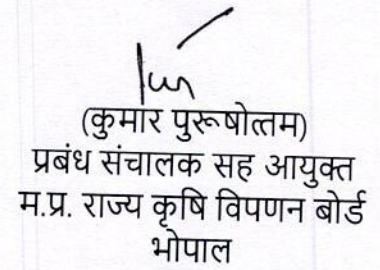 (कुमार पुरूषोत्तम)
प्रबंध संचालक सह आयुक्त
म.प्र. राज्य कृषि विपणन बोर्ड
भोपाल